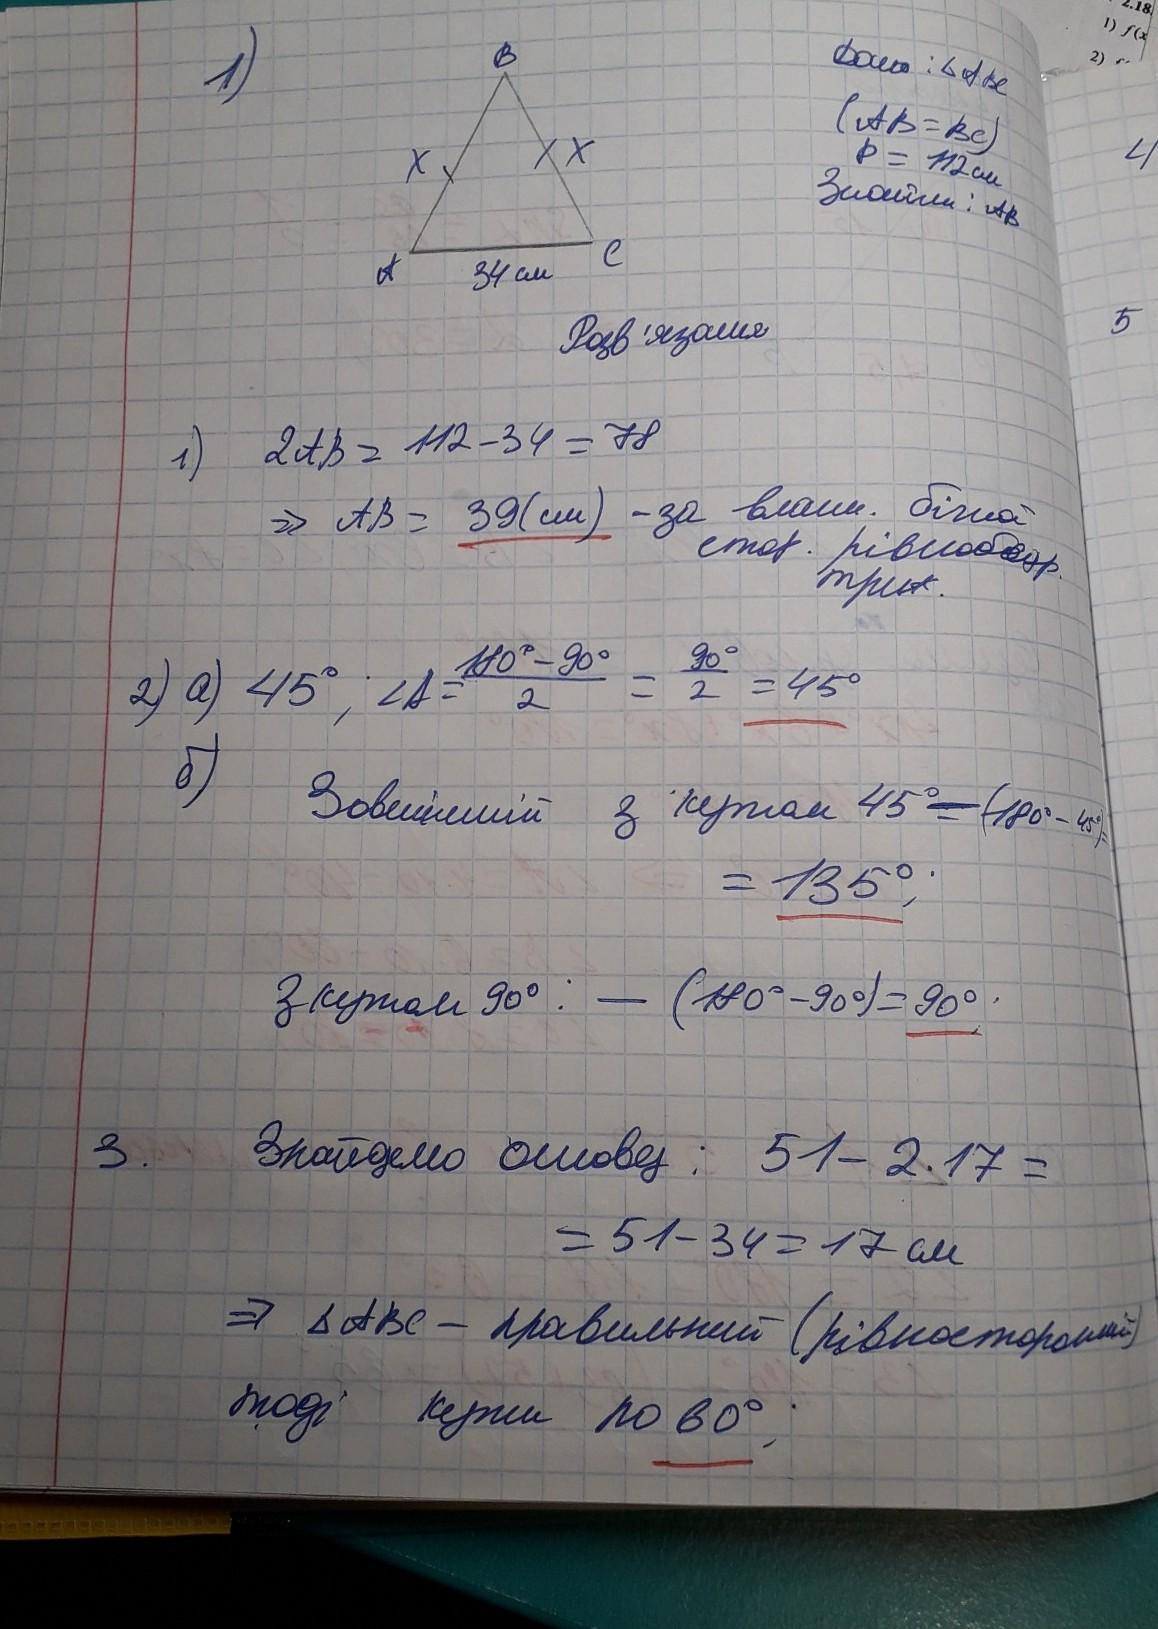 2.18.
1) f(x
2)
1)
B
Дано : △ABC
(AB = BC)
P = 112 см
Знайти : AB
X
X
A
C
34 см
4
Розв'язання
5
1) 2AB = 112 - 34 = 78
=> AB = 39 (см) - за власт. бічної
стор. рівнобедр.
трик.
2) а) 45° ; ∠A = (180° - 90°)/2 = 90°/2 = 45°
б)
Зовнішній з кутом 45° = (180° - 45°) =
= 135° ;
З кутом 90° : — (180° - 90°) = 90° .
3. Знайдемо основу : 51 - 2·17 =
= 51 - 34 = 17 см
=> △ABC - правильний (рівносторонній)
тоді кути по 60° ;